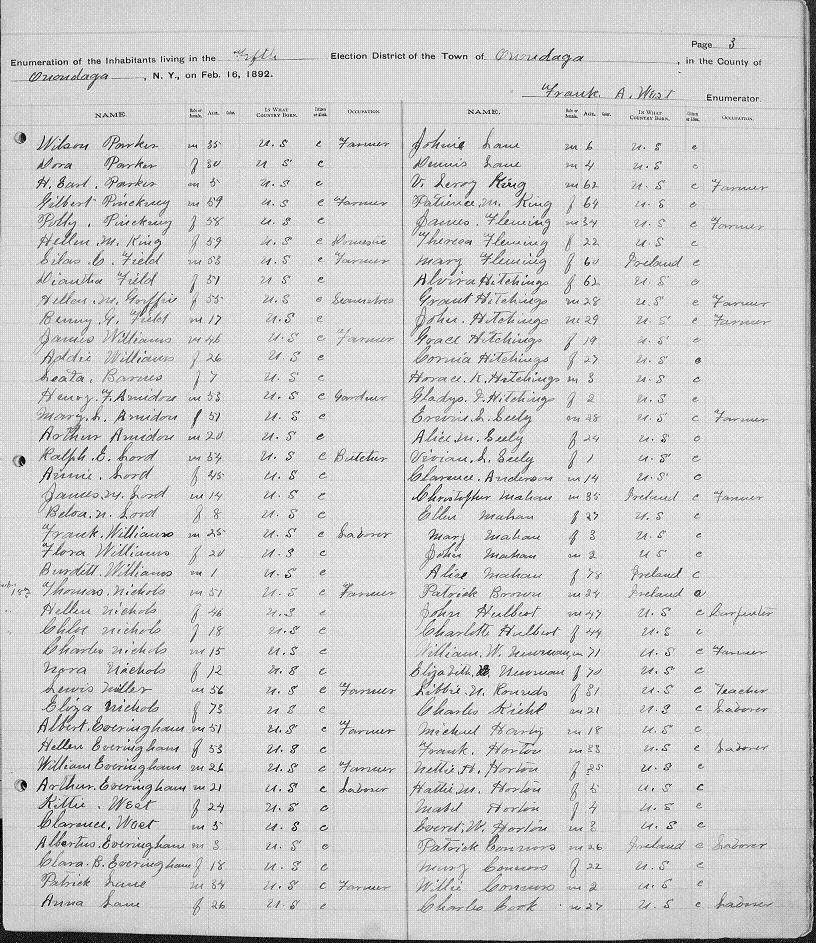 Page 3
Enumeration of the Inhabitants living in the Fifth Election District of the Town of Onondaga, in the County of
Onondaga, N. Y., on Feb. 16, 1892.
Frank A. West Enumerator.
NAME. Male or female. AGES. IN WHAT COUNTRY BORN. Citizen or alien. OCCUPATION.
Wilson Parker m 35 U.S c Farmer
Dora Parker f 30 U S c
H. Earl. Parker m 5 U.S c
Gilbert Pinckney m 59 U.S c Farmer
Polly. Pinckney f 58 U.S c
Hellen. M. King f 59 U.S c Domestic
Silas. C. Field m 53 U.S c Farmer
Diantha Field f 51 U S c
Hellen. M. f 55 U.S c
Benny. G. Field m 17 U.S c
James Williams m 46 U S c Farmer
Addie Williams f 26 U.S c
Leata. Barnes f 7 U.S c
Henry. F. Amidon m 53 U.S c Gardner
Mary. L. Amidon f 51 U.S c
Arthur Amidon m 20 U.S c
Ralph. E. Lord m 54 U.S c Butcher
Annie. Lord f 45 U.S c
James. M. Lord m 14 U.S c
N. Lord f 8 U.S c
Frank. Williams m 25 U.S c Laborer
Flora Williams f 20 U.S c
Burdett. Williams m 1 U.S c
Thomas. Nichols m 51 U.S c Farmer
Hellen Nichols f 46 U.S c
Chloe Nichols f 18 U.S c
Charles Nichols m 15 U.S c
Nora Nichols f 12 U.S c
Lewis Miller m 56 U.S c Farmer
Eliza Nichols f 73 U.S c
Albert. Everingham m 51 U.S c Farmer
Hellen Everingham f 53 U.S c
William Everingham m 26 U.S c Farmer
Arthur. Everingham m 21 U.S c Laborer
Kittie. West f 24 U.S c
Clarence. West m 5 U.S c
Albertus. Everingham m 3 U.S c
Clara. B. Everingham f 18 U.S c
Patrick Lane m 34 U.S c Farmer
Anna Lane f 26 U.S c
NAME. Male or female. AGES. IN WHAT COUNTRY BORN. Citizen or alien. OCCUPATION.
Johnie Lane m 6 U.S c
Dennis Lane m 4 U.S c
V. Leroy King m 62 U.S c Farmer
Patience. M. King f 64 U.S c
James. Fleming m 34 U.S c Farmer
Theresa Fleming f 22 U.S c
Mary Fleming f 60 Ireland c
Alvira Hitchings f 62 U.S c
Grant Hitchings m 28 U.S c Farmer
John. Hitchings m 29 U.S c Farmer
Grace Hitchings f 19 U.S c
Hitchings f 27 U.S c
Horace. K. Hitchings m 3 U.S c
Gladys. Hitchings f 2 U.S c
L. Seely m 28 U.S c Farmer
Alice. M. Seely f 24 U.S c
Vivian. L. Seely f 1 U.S c
Clarence. Anderson m 14 U.S c
Christopher Mahan m 35 Ireland c Farmer
Ellen Mahan f 27 U.S c
Mary Mahan f 3 U.S c
John Mahan m 2 U S c
Alice Mahan f 78 Ireland c
Patrick Brown m 24 Ireland a
John Hulbert m 47 U.S c Carpenter
Charlotte Hulbert f 44 U.S c
William. W. Newman m 71 U.S c Farmer
Elizabeth. Newman f 70 U.S c
Libbie. N. Rounds f 31 U.S c Teacher
Charles Kiehl m 21 U.S c Laborer
Michael m 18 U.S c
Frank. Horton m 33 U.S c Laborer
Nettie. H. Horton f 25 U.S c
Hattie. M. Horton f 5 U.S c
Mabel Horton f 4 U.S c
Everet. W. Horton m 3 U.S c
Patrick Connors m 26 Ireland c Laborer
Mary Connors f 22 U.S c
Willie Connors m 2 U.S c
Charles Cook m 27 U.S c Laborer